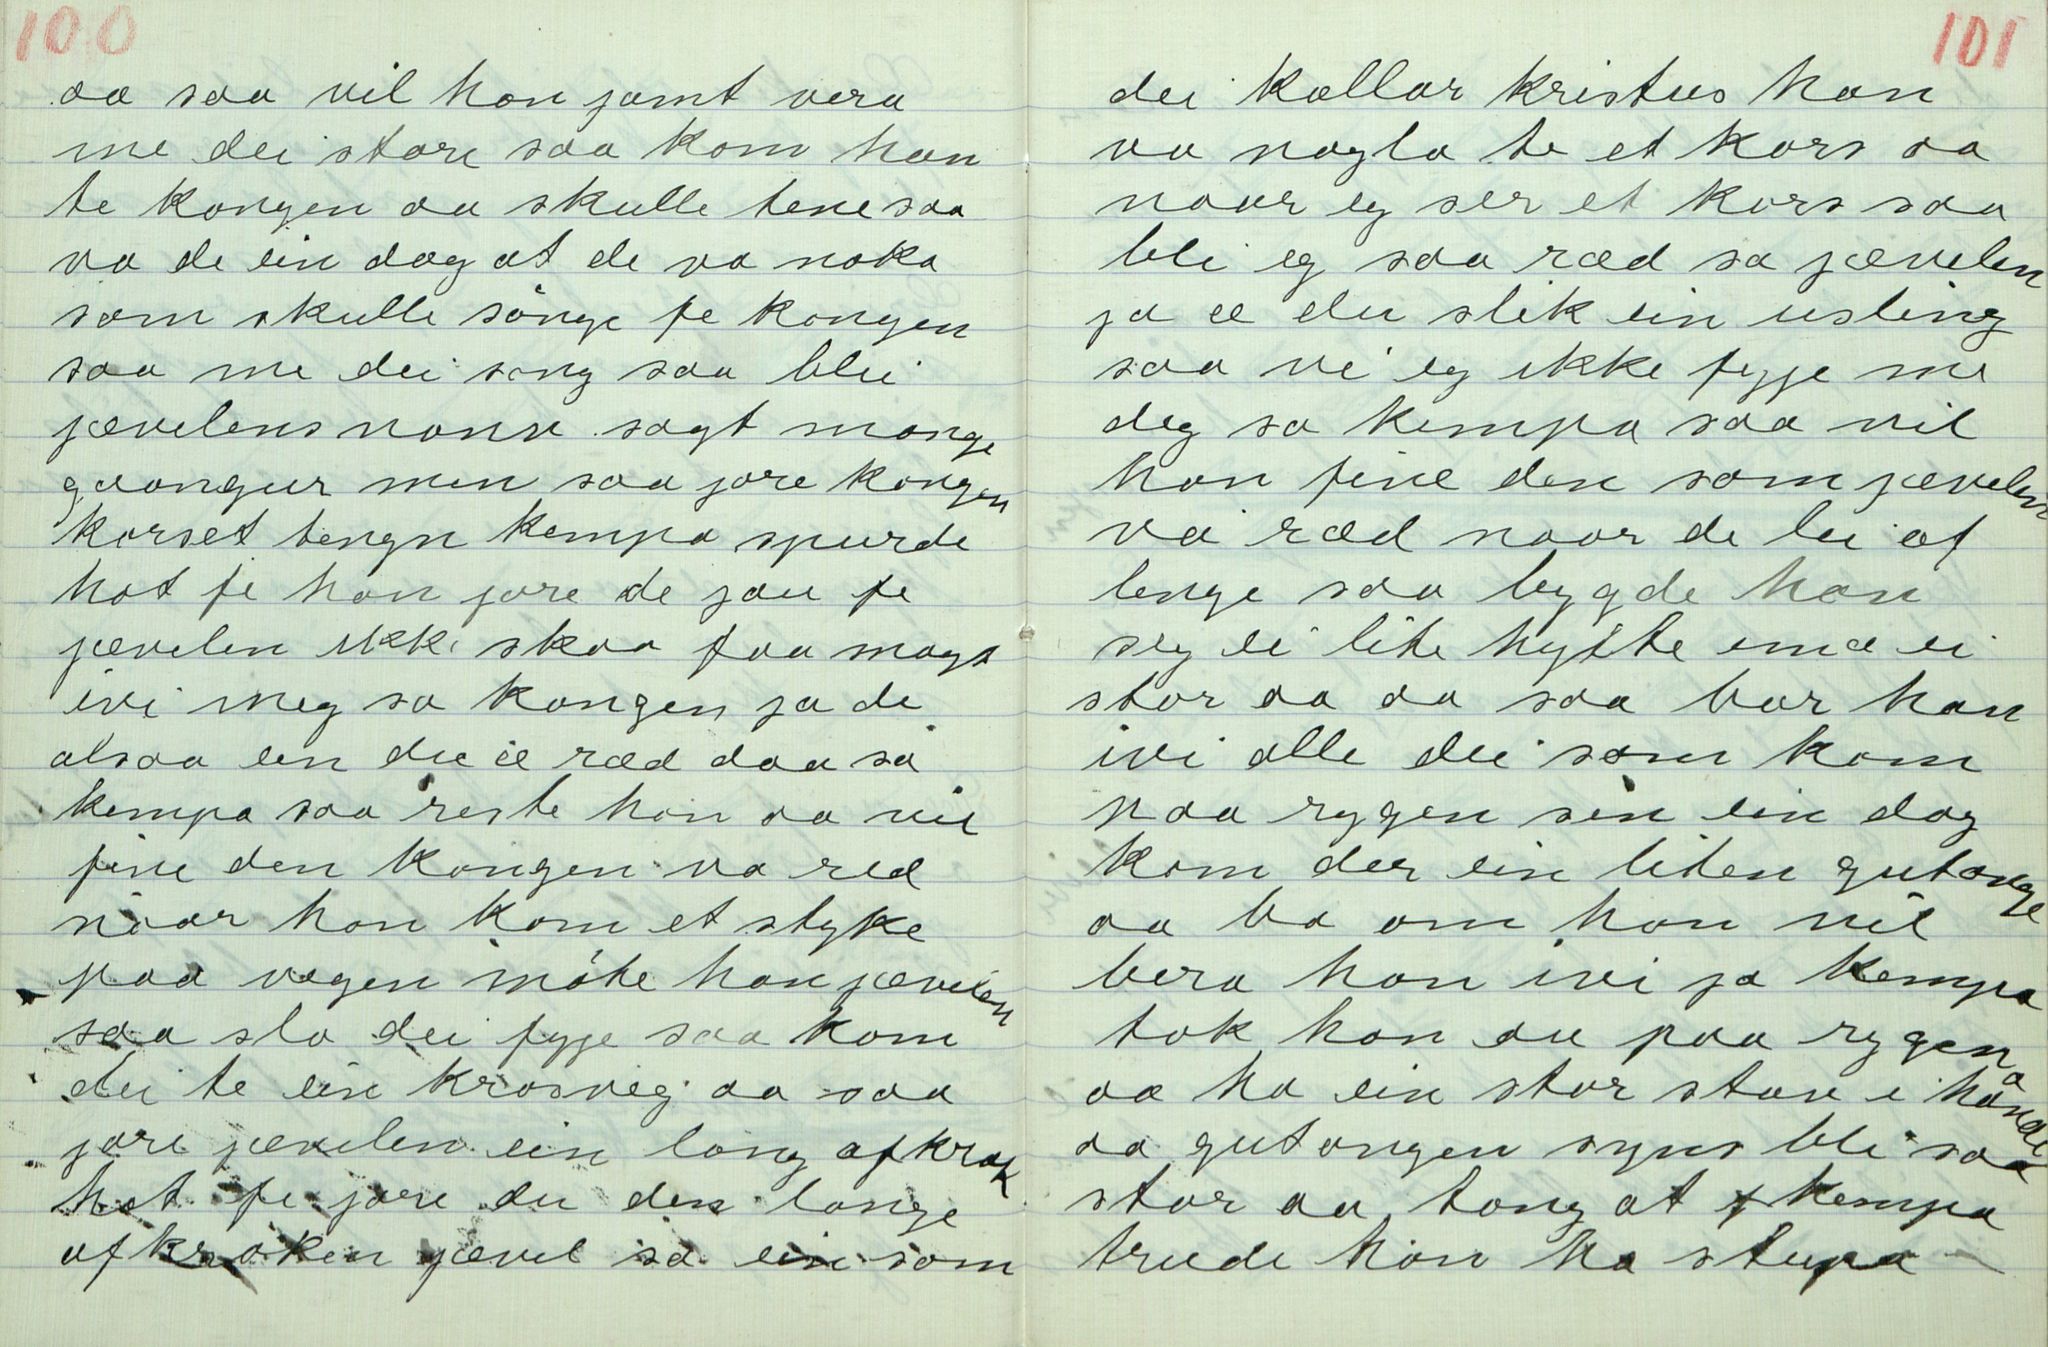 100
aa saa vil han jamt vera
me dei store saa kom han
te kongen aa skulle tene saa
va de ein dag at de va noka
som skulle sönge fe kongen
saa me dei song saa blei
jævelens navn sagt mange
gaangur men saa jore kongen
korset tengn kempa spurde
hot fe han jore de jau fe
jævelen ikki skaa faa magt
ivi meg sa kongen ja de
alsaa ein du æ ræd daa sa
kempa saa reste han aa vil
fine den kongen va red
naar han kom et styke
paa vægen möte han jævelen
saa slo dei fygje saa kom
dei te ein krosveg aa saa
jore jævelen ein lang afkrok
hot fe jore du den lange
afkroken jævel sa ein som
101
dei kallar kristus han
va nagla te et kors aa
naar eg ser et kors saa
bli eg saa ræd sa jævelen
ja æ du slik ein usling
saa vi eg ikke fygje me
deg sa kempa saa vil
han fine den som jævelen
va ræd naar de lei af
lenge saa bygde han
seg ei lite hytte me ei
stor aa aa saa bar han
ivi alle dei som kom
paa rygen sin ein dag
kom der ein liten gutonge
aa ba om han vil
bera han ivi ja kempa
tok han au paa rygen
aa ha ein stor stav i hande
aa gutongen syns bli saa
stor aa tong at kempa
trude han ha stupa